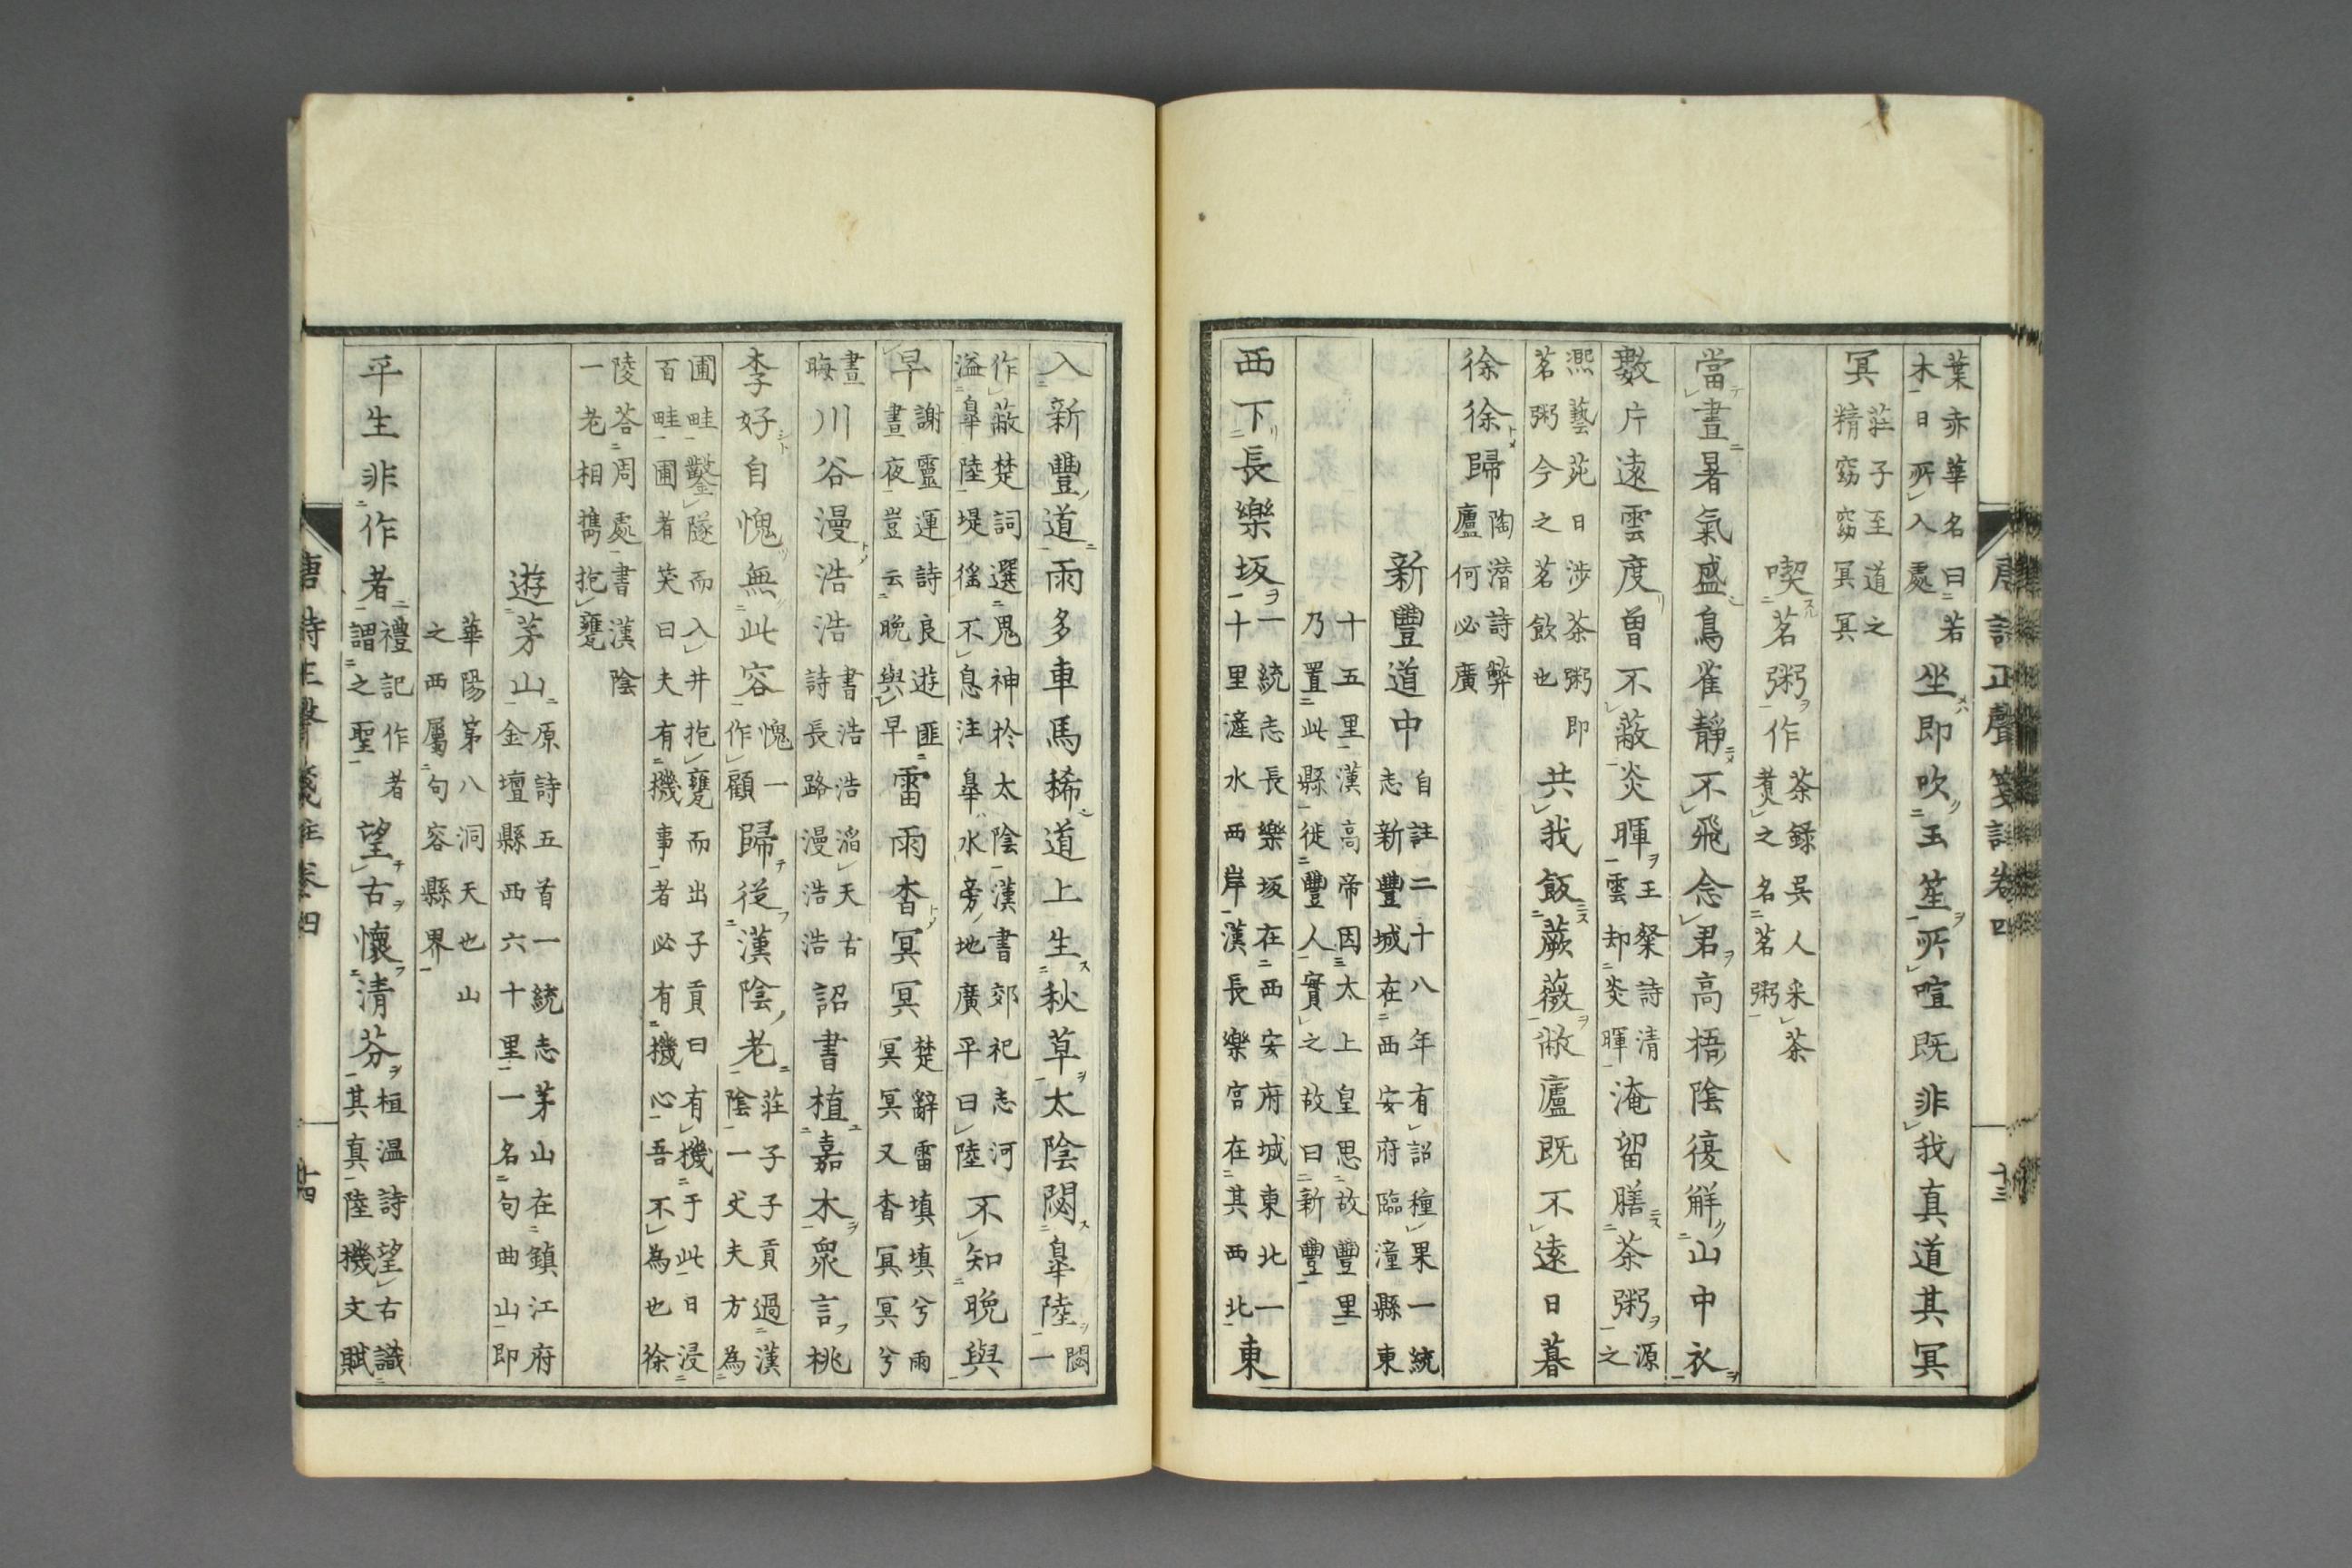 唐詩正聲箋註卷四 十三
葉亦華名曰若木日所入處坐即吹玉笙所喧既非我真道其冥
冥莊子至道之精窈窈冥冥
喫茗粥作茶録吳人采茶煑之名茗粥
當晝暑氣盛鳥雀靜不飛念君高梧陰復解山中衣
數片遠雲度曾不蔽炎暉王粲詩清雲却炎暉淹留膳茶粥源之
熈藝苑曰涉茶粥即茗粥今之茗飲也共我飯蕨薇敝廬既不遠日暮
徐徐歸陶潛詩弊廬何必廣
新豐道中自註二十八年有詔種果一統志新豐城在西安府臨潼縣東
十五里漢高帝因太上皇思故豐里乃置此縣徙豐人實之故曰新豐
西下長樂坂一統志長樂坂在西安府城東北一十里滻水西岸漢長樂宮在其西北東
入新豐道雨多車馬稀道上生秋草太陰閟皐陸閟一
作蔽楚詞選鬼神於太陰漢書郊祀志河溢皐陸堤徭不息注皐水旁地廣平曰陸不知晚與
早謝靈運詩良遊匪晝夜豈云晚與早雷雨杳冥冥楚辭雷填填兮雨冥冥又杳冥冥兮
晝晦川谷漫浩浩書浩浩滔天古詩長路漫浩浩詔書植嘉木衆言桃
李好自愧無此容愧一作顧歸從漢陰老莊子子貢過漢陰一丈夫方為
圃畦鑿隧而入井抱甕而出子貢曰有機于此日浸百畦圃者笑曰夫有機事者必有機心吾不為也徐
陵荅周處書漢陰一老相携抱甕
遊茅山原詩五首一統志茅山在鎮江府金壇縣西六十里一名句曲山即
華陽第八洞天也山之西屬句容縣界
平生非作者禮記作者謂之聖望古懷清芬桓温詩望古識其真陸機文賦
唐詩正聲箋註卷四 十四